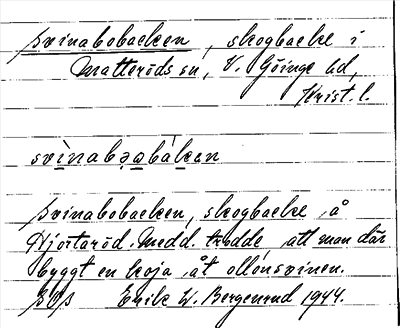 Svinabobacken, skogbacke i
Matteröds sn, V. Göinge hd,
Krist. l.
svìnabǝabàken
Svinabobacken, skogbacke å
Hjortaröd. Medd. trodde att man där
byggt en koja åt ollonsvinen.
Erik W. Bergenrud 1944.